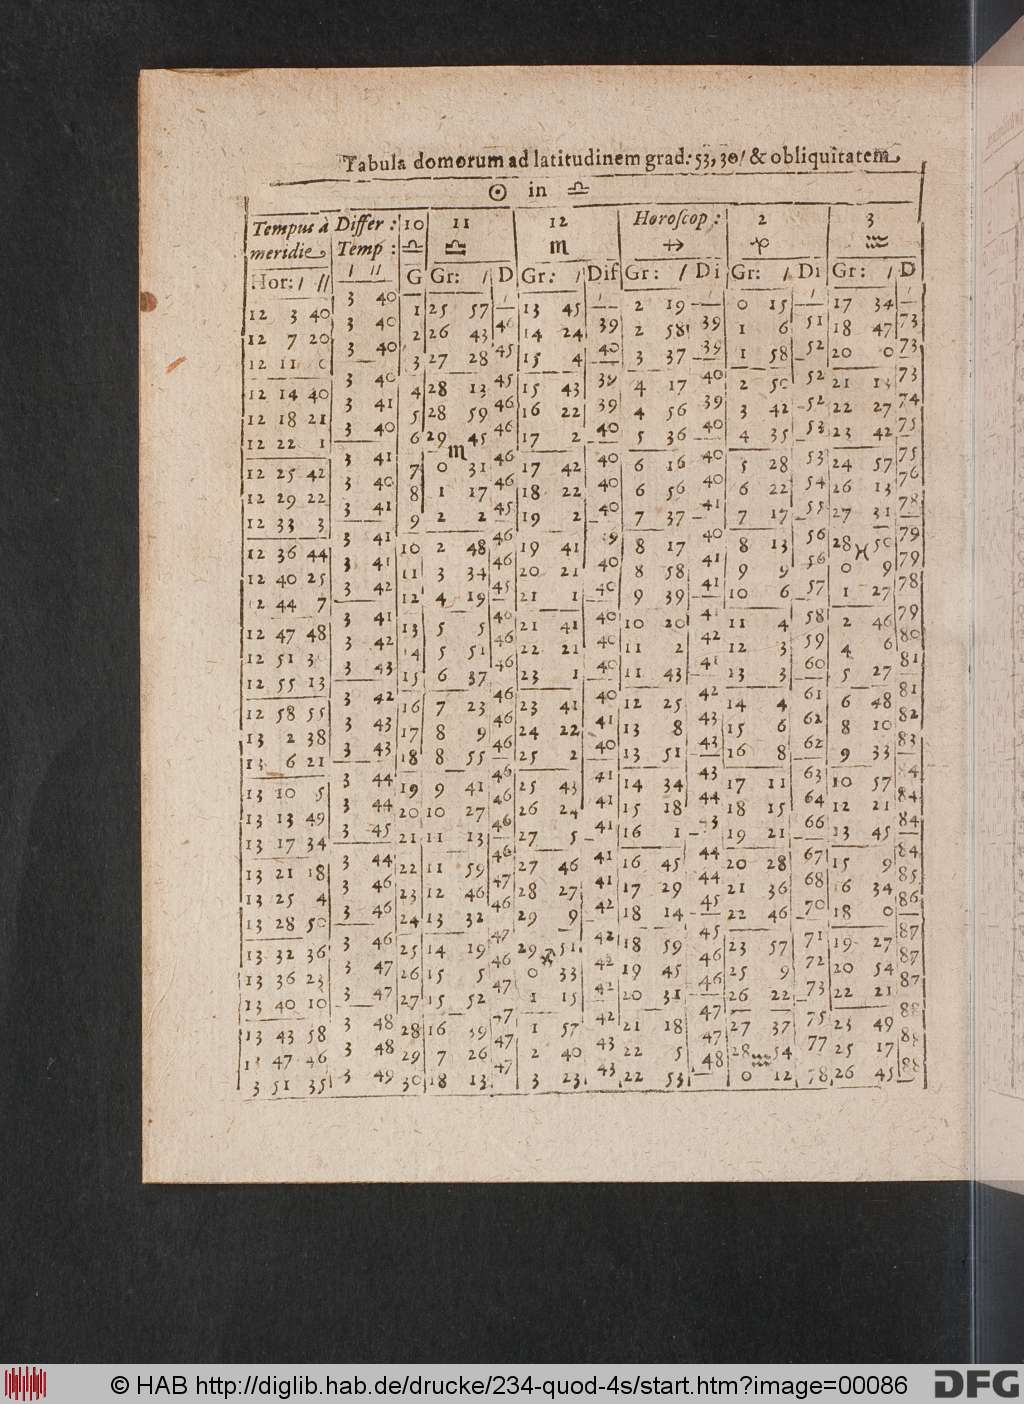 Tabula domorum ad latitudinem grad: 53, 30/ & obliquitatem
☉ in ♎
Tempus à Differ: 10 11 12 Horoscop: 2 3
meridie Temp: ♎ ♎ ♏ ♐ ♑ ♒
Hor: / // / // G Gr: / D Gr: / Dif Gr: / Di Gr: / Di Gr: / D
12 3 40 3 40 1 25 57 — 13 45 — 2 19 — 0 15 — 17 34 —
12 7 20 3 40 2 26 43 46 14 24 39 2 58 39 1 6 51 18 47 73
12 11 0 3 40 3 27 28 45 15 4 40 3 37 39 1 58 52 20 0 73
12 14 40 3 40 4 28 13 45 15 43 39 4 17 40 2 50 52 21 13 73
12 18 21 3 41 5 28 59 46 16 22 39 4 56 39 3 42 52 22 27 74
12 22 1 3 40 6 29 45 46 17 2 40 5 36 40 4 35 53 23 42 75
♏
12 25 42 3 41 7 0 31 46 17 42 40 6 16 40 5 28 53 24 57 75
12 29 22 3 40 8 1 17 46 18 22 40 6 56 40 6 22 54 26 13 76
12 33 3 3 41 9 2 2 45 19 2 40 7 37 41 7 17 55 27 31 78
12 36 44 3 41 10 2 48 46 19 41 9 8 17 40 8 13 56 28 50 79
♓
12 40 25 3 41 11 3 34 46 20 21 40 8 58 41 9 9 56 0 9 79
2 44 7 3 42 12 4 19 45 21 1 40 9 39 41 10 6 57 1 27 78
12 47 48 3 41 13 5 5 46 21 41 40 10 20 41 11 4 58 2 46 79
12 51 30 3 42 14 5 51 46 22 21 40 11 2 42 12 3 59 4 6 80
12 55 13 3 43 15 6 37 46 23 1 40 11 43 41 13 3 60 5 27 81
12 58 55 3 42 16 7 23 46 23 41 40 12 25 42 14 4 61 6 48 81
13 2 38 3 43 17 8 9 46 24 22 41 13 8 43 15 6 62 8 10 82
13 6 21 3 43 18 8 55 46 25 2 40 13 51 43 16 8 62 9 33 83
13 10 5 3 44 19 9 41 46 25 43 41 14 34 43 17 11 63 10 57 84
13 13 49 3 44 20 10 27 46 26 24 41 15 18 44 18 15 64 12 21 84
13 17 34 3 45 21 11 13 46 27 5 41 16 1 43 19 21 66 13 45 84
13 21 18 3 44 22 11 59 46 27 46 41 16 45 44 20 28 67 15 9 84
13 25 4 3 46 23 12 46 47 28 27 41 17 29 44 21 36 68 16 34 85
13 28 50 3 46 24 13 32 46 29 9 42 18 14 45 22 46 70 18 0 86
13 32 36 3 46 25 14 19 47 29 51 42 18 59 45 23 57 71 19 27 87
♐
13 36 23 3 47 26 15 5 46 0 33 42 19 45 46 25 9 72 20 54 87
13 40 10 3 47 27 15 52 47 1 15 42 20 31 46 26 22 73 22 21 87
13 43 58 3 48 28 16 39 47 1 57 42 21 18 47 27 37 75 23 49 88
13 47 46 3 48 29 7 26 47 2 40 43 22 5 47 28 54 77 25 17 88
♒
3 51 35 3 49 30 18 13 47 3 23 43 22 53 48 0 12 78 26 45 88
© HAB http://diglib.hab.de/drucke/234-quod-4s/start.htm?image=00086 DFG